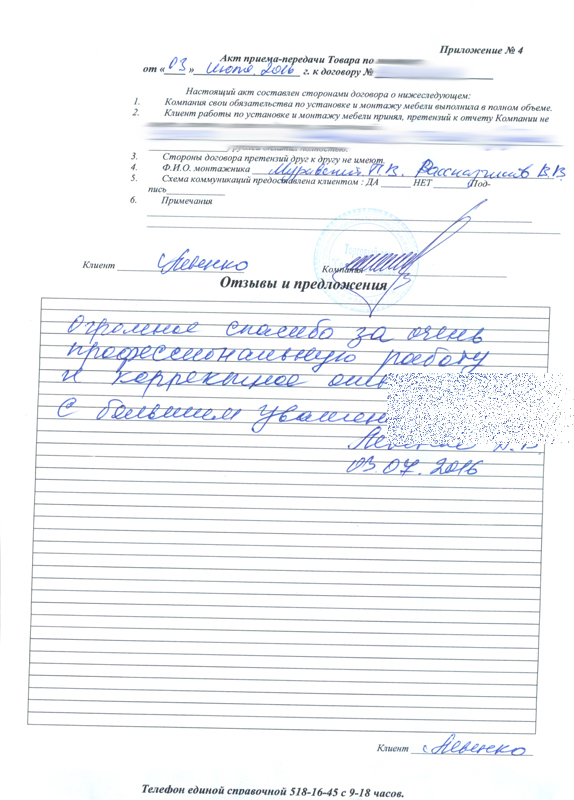 Приложение № 4
Акт приема-передачи Товара по
от «03» июля 2016 г. к договору №
Настоящий акт составлен сторонами договора о нижеследующем:
1. Компания свои обязательства по установке и монтажу мебели выполнила в полном объеме.
2. Клиент работы по установке и монтажу мебели принял, претензий к отчету Компании не
3. Стороны договора претензий друг к другу не имеют.
4. Ф.И.О. монтажника Муравский П.В.
5. Схема коммуникаций предоставлена клиентом : ДА ______ НЕТ ______ /Под-
пись
6. Примечания
Клиент Левенко
Компания
Отзывы и предложения
Огромное спасибо за очень
профессиональную работу
и корректное
С большим
03.07.2016
Клиент Левенко
Телефон единой справочной 518-16-45 с 9-18 часов.